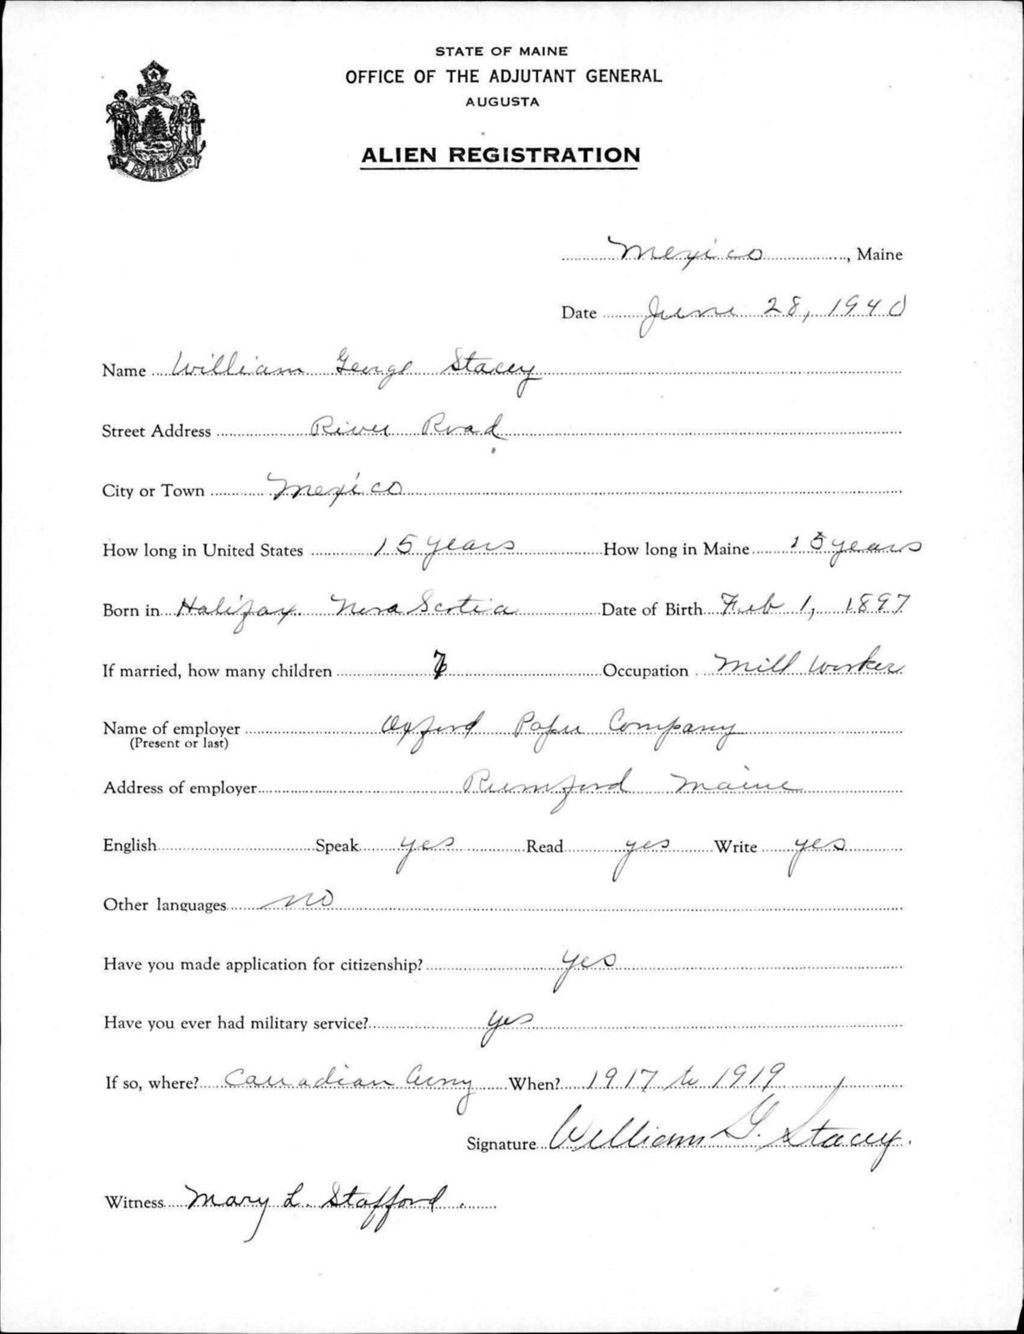 STATE OF MAINE
OFFICE OF THE ADJUTANT GENERAL
AUGUSTA
ALIEN REGISTRATION
MAINE
Mexico, Maine
Date June 28, 1940
Name William George Stacey
Street Address River Road
City or Town Mexico
How long in United States 15 years How long in Maine 15 years
Born in Halifax Nova Scotia Date of Birth Feb 1, 1897
If married, how many children Occupation Mill Worker
Name of employer Oxford Paper Company
(Present or last)
Address of employer Rumford Maine
English Speak yes Read yes Write yes
Other languages no
Have you made application for citizenship? yes
Have you ever had military service? yes
If so, where? Canadian Army When? 1917 to 1919
Signature William G. Stacey.
Witness Mary L. Stafford.